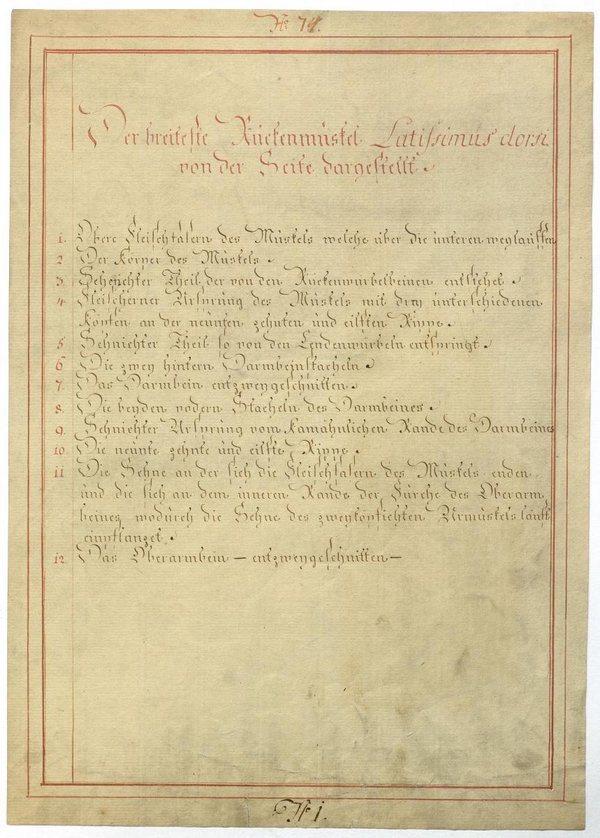 № 74.
Der breiteste Rückenmüskel Latissimus dorsi.
von der Seite dargestellt.
1. Obere Fleischfasern des Müskels welche über die unteren weglauffen
2 Der Körper des Müskels.
3. Sehnichter Theil der von den Rückenwürbelbeinen entstehet.
4. Fleischerner Ursprüng des Müskels mit drey unterschiedenen
Köpfen an der neünten zehnten und eilften Rippe.
5 Sehnichter Theil so von den Lendenwürbeln entspringt.
6 Die zwey hintern Darmbeinstacheln.
7. Das Darmbein entzweygeschnitten.
8. Die beyden vodern Stacheln des Darmbeines.
9. Sehnichter Ursprüng vom kamähnlichen Rande des Darmbeines
10. Die neünte zehnte und eilfte Rippe.
11 Die Sehne an der sich die Fleischfasern des Müskels enden
und die sich an dem inneren Rande der Fürche des Oberarm
beines wodürch die Sehne des zweyköpfichten Armüskels läuft
einpflanzet.
12. Das Oberarmbein — entzweygeschnitten —
№ 1.